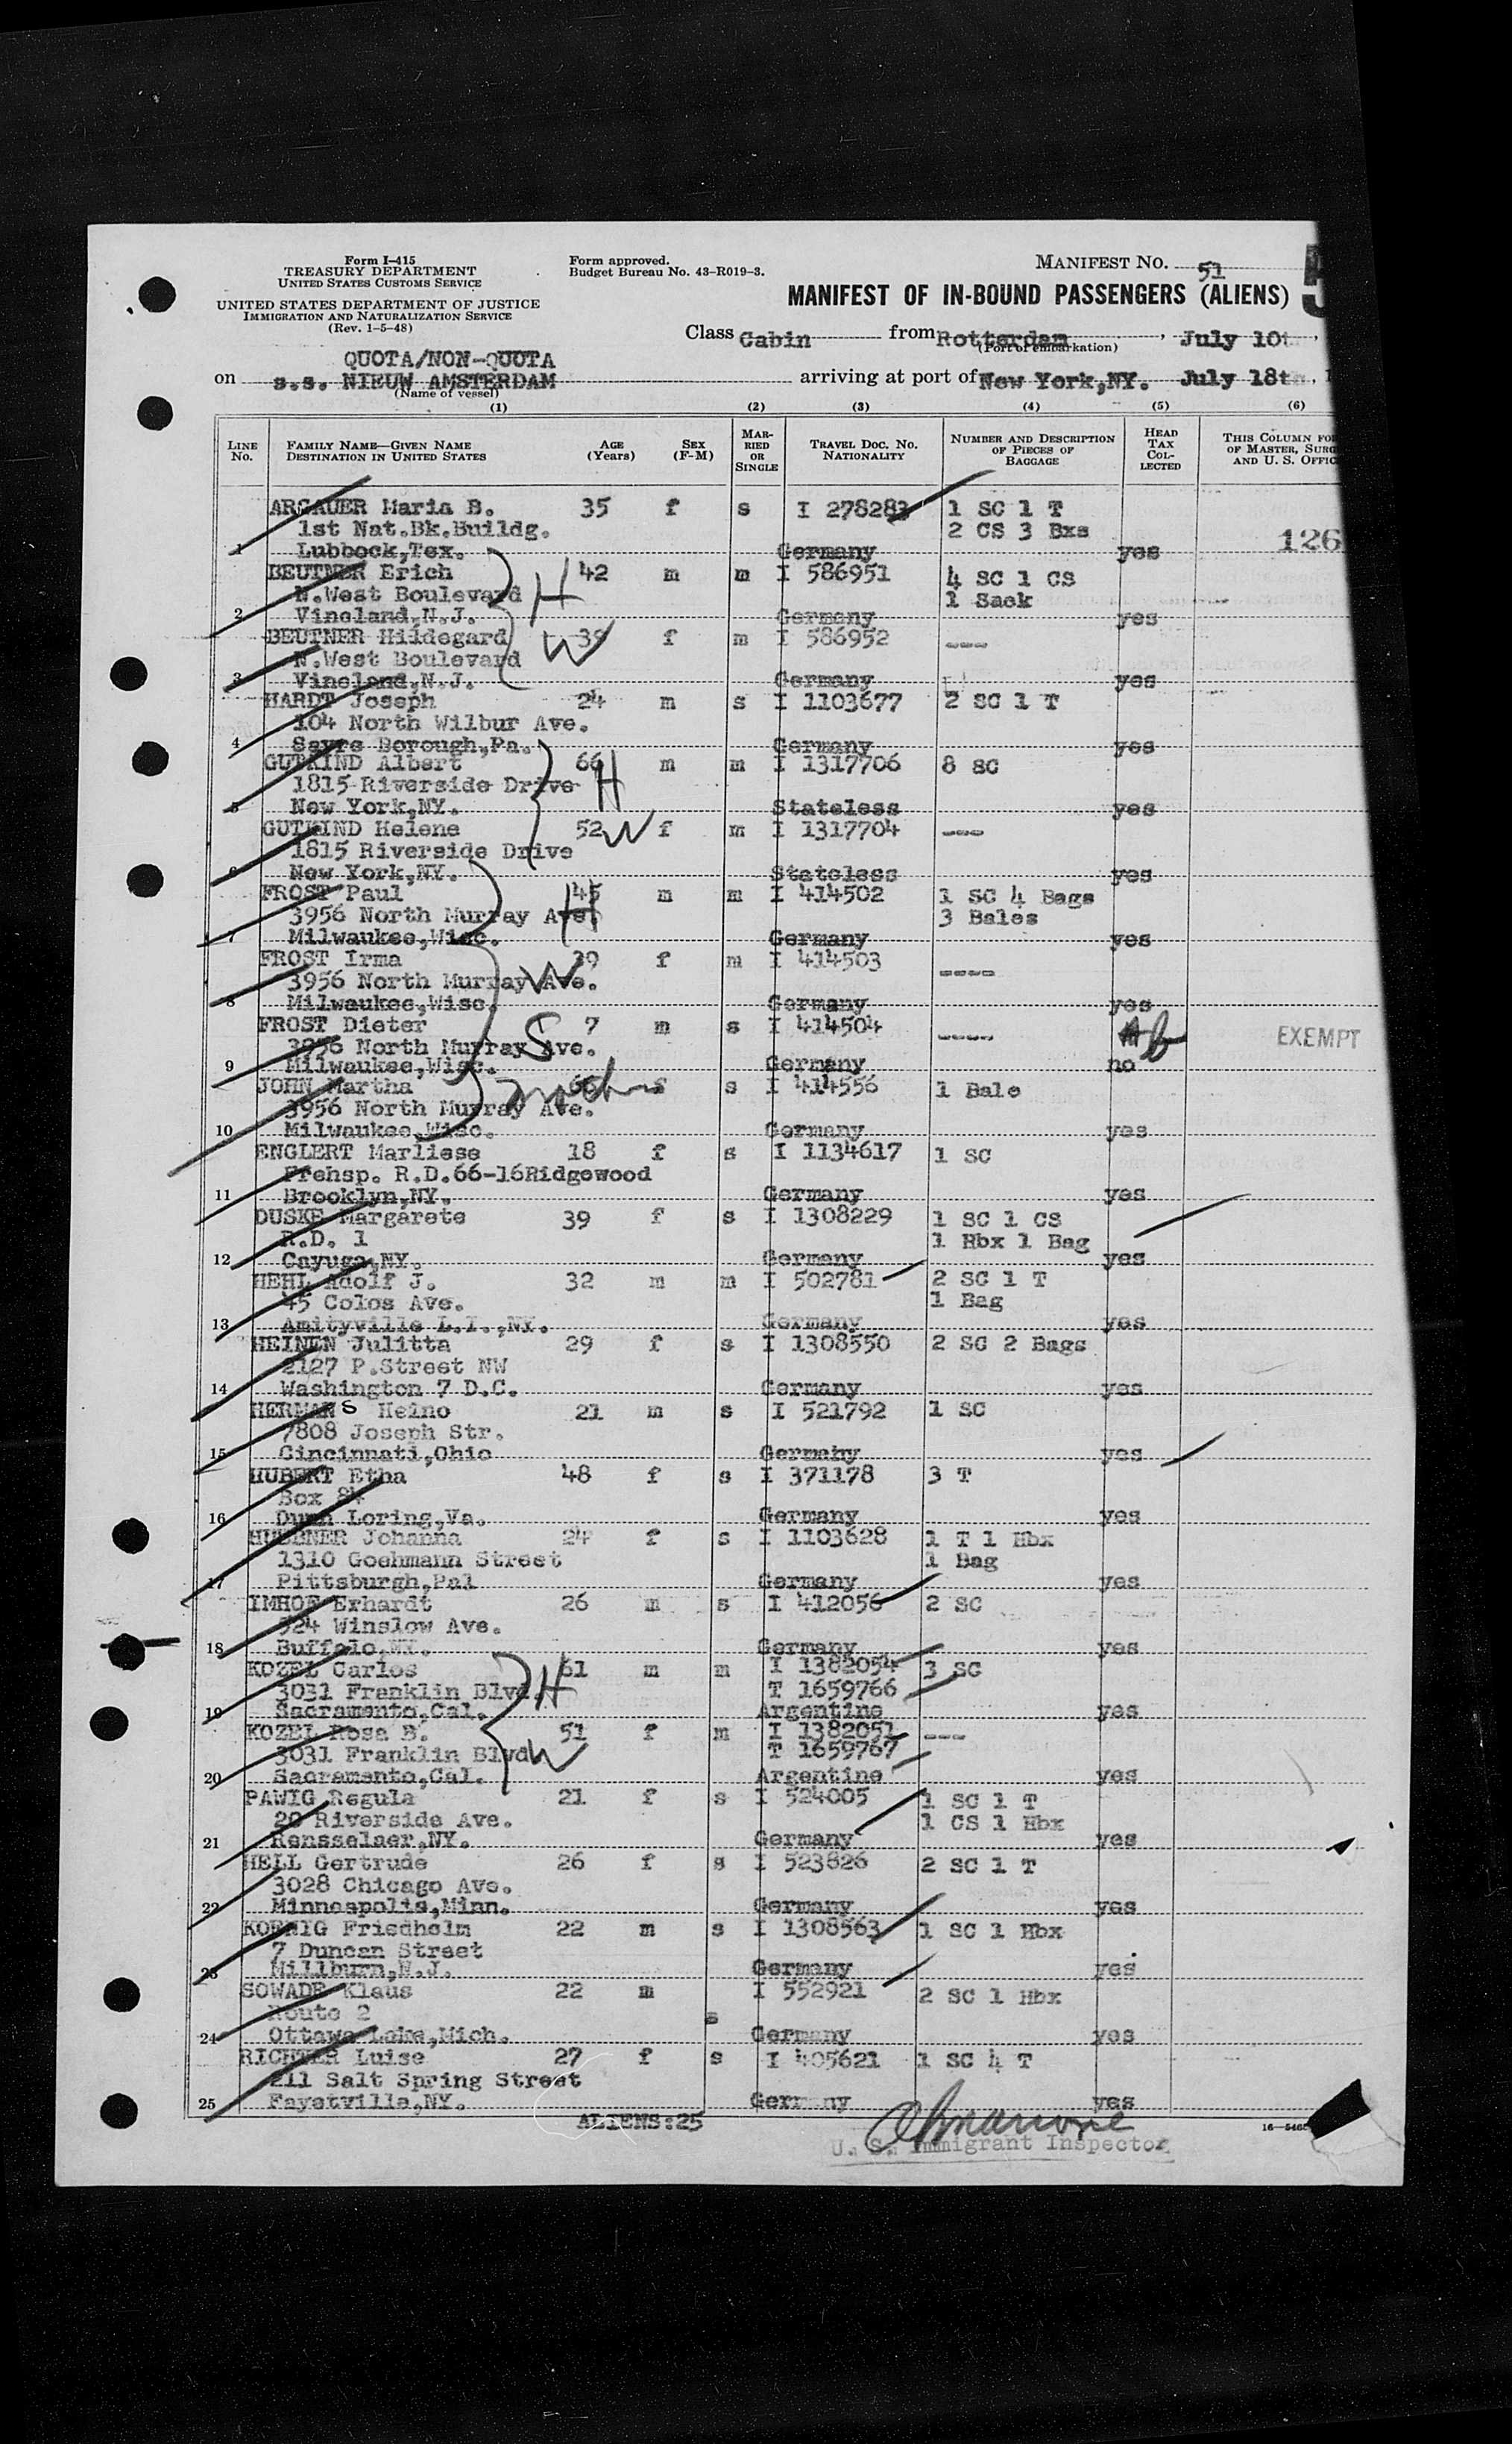 Form I-415
TREASURY DEPARTMENT
UNITED STATES CUSTOMS SERVICE
UNITED STATES DEPARTMENT OF JUSTICE
IMMIGRATION AND NATURALIZATION SERVICE
(Rev. 1-5-48)
Form approved.
Budget Bureau No. 43-R019-3.
MANIFEST NO. 51
MANIFEST OF IN-BOUND PASSENGERS (ALIENS)
Class Cabin from Rotterdam, July 10t
(Port of embarkation)
QUOTA/NON-QUOTA
on s.s. NIEUW AMSTERDAM arriving at port of New York,NY. July 18th, 1
(Name of vessel)
(1) (2) (3) (4) (5) (6)
LINE No. FAMILY NAME—GIVEN NAME DESTINATION IN UNITED STATES AGE (Years) SEX (F-M) MARRIED OR SINGLE TRAVEL DOC. NO. NATIONALITY NUMBER AND DESCRIPTION OF PIECES OF BAGGAGE HEAD TAX COLLECTED THIS COLUMN FO OF MASTER, SURG AND U. S. OFFIC
ARGAUER Maria B. 35 f s I 278283 1 SC 1 T
1st Nat.Bk.Buildg. 2 CS 3 Bxs 126
1 Lubbock,Tex. Germany yes
BEUTNER Erich 42 m m I 586951 4 SC 1 CS
N.West Boulevard H 1 Sack
2 Vineland,N.J. Germany yes
BEUTNER Hildegard 39 f m I 586952 ---
N.West Boulevard W
3 Vineland,N.J. Germany yes
HARDT Joseph 24 m s I 1103677 2 SC 1 T
104 North Wilbur Ave.
4 Sayre Borough,Pa. Germany yes
GUTKIND Albert 66 m m I 1317706 8 SC
1815 Riverside Drive H
5 New York,NY. Stateless yes
GUTKIND Helene 52 W f m I 1317704 ---
1815 Riverside Drive
6 New York,NY. Stateless yes
FROST Paul 45 m m I 414502 1 SC 4 Bags
3956 North Murray Ave. H 3 Bales
7 Milwaukee,Wisc. Germany yes
FROST Irma 39 f m I 414503 ----
3956 North Murray Ave. W
8 Milwaukee,Wisc. Germany yes
FROST Dieter S 7 m s I 414504 ---- EXEMPT
3956 North Murray Ave.
9 Milwaukee,Wisc. Germany no
JOHN Martha 66 f s I 414556 1 Bale
3956 North Murray Ave.
10 Milwaukee,Wisc. Germany yes
ENGLERT Marliese 18 f s I 1134617 1 SC
Frehsp. R.D.66-16Ridgewood
11 Brooklyn,NY. Germany yes
DUSKE Margarete 39 f s I 1308229 1 SC 1 CS
R.D. 1 1 Hbx 1 Bag
12 Cayuga,NY. Germany yes
HEHL Adolf J. 32 m m I 502781 2 SC 1 T
45 Colos Ave. 1 Bag
13 Amityville L.I.,NY. Germany yes
HEINEN Julitta 29 f s I 1308550 2 SC 2 Bags
2127 P.Street NW
14 Washington 7 D.C. Germany yes
HERMANS Heino 21 m s I 521792 1 SC
7808 Joseph Str.
15 Cincinnati,Ohio Germahy yes
HUBERT Etha 48 f s I 371178 3 T
Box 84
16 Dunn Loring,Va. Germany yes
HUEBNER Johanna 24 f s I 1103628 1 T 1 Hbx
1310 Goehmann Street 1 Bag
17 Pittsburgh,Pal Germany yes
IMHOF Erhardt 26 m s I 412056 2 SC
524 Winslow Ave.
18 Buffalo,NY. Germany yes
KOZEL Carlos 61 m m I 1382054 3 SC
3031 Franklin Blvd. H T 1659766
19 Sacramento,Cal. Argentine yes
KOZEL Rosa B. 51 f m I 1382051 ---
3031 Franklin Blvd W T 1659767
20 Sacramento,Cal. Argentine yes
PAWIG Regula 21 f s I 524005 1 SC 1 T
20 Riverside Ave. 1 CS 1 Hbx
21 Rensselaer,NY. Germany yes
HELL Gertrude 26 f s I 523826 2 SC 1 T
3028 Chicago Ave.
22 Minneapolis,Minn. Germany yes
KOENIG Friedhelm 22 m s I 1308563 1 SC 1 Hbx
7 Duncan Street
23 Millburn,N.J. Germany yes
SOWADE Klaus 22 m I 552921 2 SC 1 Hbx
Route 2 s
24 Ottawa Lake,Mich. Germany yes
RICHTER Luise 27 f s I 405621 1 SC 4 T
211 Salt Spring Street
25 Fayetville,NY. Germany yes
ALIENS:25
U. S. Immigrant Inspector